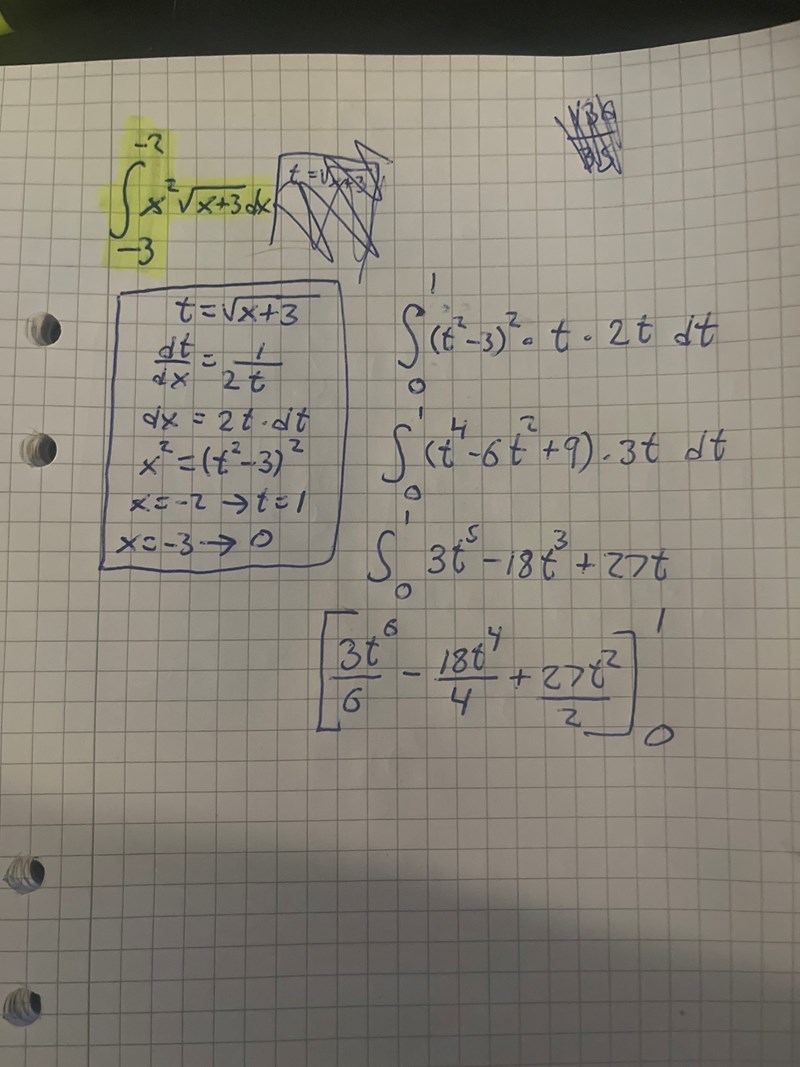 ∫₋₃⁻² x² √(x+3) dx
t = √(x+3)
t = √(x+3)
dt/dx = 1/(2t)
dx = 2t · dt
x² = (t²-3)²
x = -2 → t = 1
x = -3 → 0
∫₀¹ (t²-3)² · t · 2t dt
∫₀¹ (t⁴-6t²+9) · 3t dt
∫₀¹ 3t⁵ - 18t³ + 27t
[3t⁶/6 - 18t⁴/4 + 27t²/2]₀¹